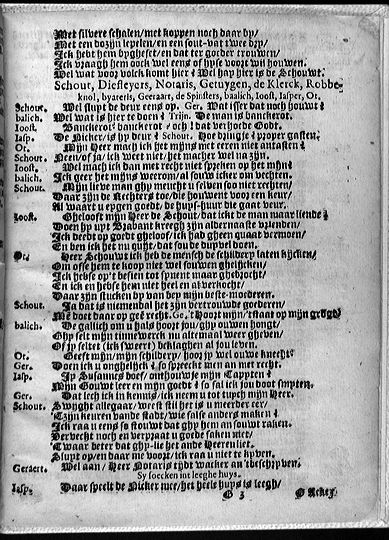 Met silvere schalen/met koppen noch daer by/
Met een dozijn lepelen/en een sout-vat twee dry/
Ick hebt hem byghebet/en dat ter goeder trouwen/
Ick vraagh hem oock wel eens of hyse voort wil houwen.
Wel wat voor volck komt hier? Wel hay hier is de Schouwt.
Schout, Diefleyers, Notaris, Getuygen, de Klerck, Robbe-
knol, byateris, Geeraart, de Spinsters, balich, Joost, Jasper, Ot.
Schout. Wel sluyt de deur eens op. Ger. Wat isser dat nochouwt?
balich. Wel wat is hier te doen? Trijn. De man is banckerot.
Joost. Banckerot? banckerot? och! dat verhoede Godt.
Jasp. De Nicker/is hy deur? Schout. Hoe dingje? proper gasten.
Ot. Mijn Heer mach ick het mijne met eeren niet antasten?
Schout. Neen/of ja/ick weet niet/het macher wel na zijn.
Joost. Wel mach ick dan met recht niet spreken op het mijn?
balich. Ick geer het mijne weerom/al souw icker om vechten.
Schout. Mijn lieve man ghy meucht u selven soo niet rechten/
Daar zijn de Rechters toe/die houwent voor een keur/
Al waart u eygen goedt/de huys-huur die gaat veur.
Joost. Gheloost mijn Heer de Schout/dat ickt de man waar liende?
Doen hy upt Brabant kreegh zijn aldermaaste vrienden/
Ick deedt op goedt gheloof/ick had gheen quaat vermoen/
En ben ick het nu quijt/dat sou de duyvel doen.
Ot. Heer Schouwt ick heb de mensch de schildery laten kijcken/
Om offe hem te koop niet wel souwen ghelijcken/
Ick hebse op 't desen tot sijnent maar ghebrocht/
En ick en hebse hem niet heel en al verkocht/
Daar zijn stucken by van bey mijn beste-moederen.
Schout. Ja dat is niemendal het zijn vertrouwde goederen/
Men doet daar op gee recht. Ger. 't Hoort mijn/'t staat op mijn grondt
balich. De gallich om u hals hoort jou/ghy ouwen hongt/
Ghy selt mijn tinnewerck nu altemaal weer gheven/
Of jy selt (ick sweert) beklaghen al jou leven.
Ot. Geeft mijn/mijn schildery/hoor jy wel ouwe knecht?
Ger. Doen ick u onghelijck? so spreeckt men an met recht.
Jasp. Jy Susannes boef/onthouwje mijn Cappyten?
Mijn Gouwt leeren mijn goedt? so sal ick jou doot smyten.
Ger. Dat lech ick in kennis/ick neem u tot tuych mijn Heer.
Schout. Swijght allegaar/weest stil het is u meerder eer/
't Zijn keuren vande stadt/wie salse anders maken?
Ick raa u eens so stouwt dat ghy hem an souwt raken.
Vervecht noch en verpraat u goede saken niet/
't Waar beter dat ghy-lie het ande Heeren liet.
Sluyt op/en daar me voort/ick raa u niet te kyven.
Geeraert. Wel aan/Heer Notaris tijdt wacker an 'tbeschryven.
Sy soecken int leeghe huys.
Jasp. Daar speelt de Nicker mee/het heele huys is leegh/
G 3 O Acker.